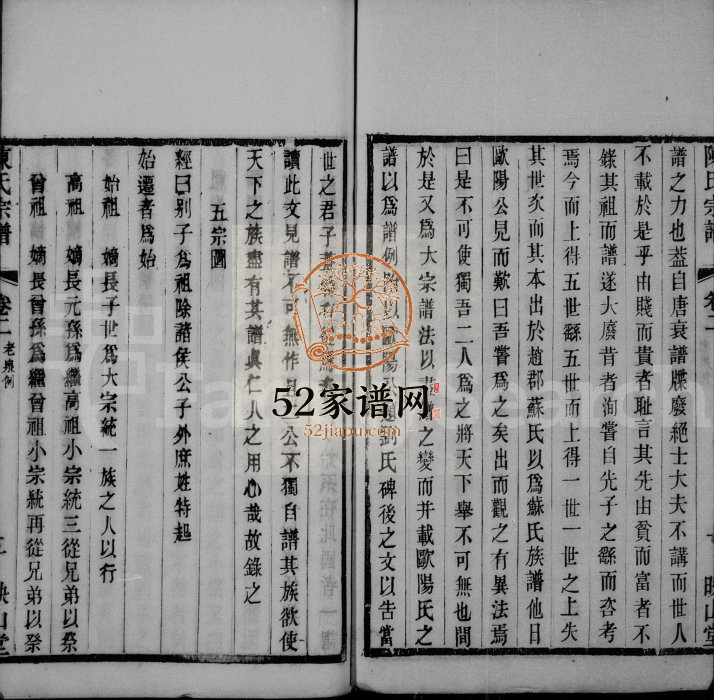 陳氏宗譜 卷二
映山堂
譜之力也葢自唐衰譜牒廢絕士大夫不講而世人
不載於是乎由賤而貴者耻言其先由貧而富者不
錄其祖而譜遂大廢昔者洵嘗自先子之繇而咨考
焉今而上得五世繇五世而上得一世一世之上失
其世次而其本出於趙郡蘇氏以爲蘇氏族譜他日
歐陽公見而歎曰吾嘗爲之矣出而觀之有異法焉
曰是不可使獨吾二人爲之將天下舉不可無也間
於是又爲大宗譜法以盡譜之變而并載歐陽氏之
譜以爲譜例 以歐陽公 劉氏碑後之文以告當
世之君子
讀此文見譜不可無作 公不獨自譜其族欲使
天下之族盡有其譜眞仁人之用心哉故錄之
五宗圖
經曰别子爲祖除諸侯公子外庶姓特起
始遷者爲始
始祖 嫡長子世爲大宗統一族之人以行
高祖 嫡長元孫爲繼高祖小宗統三從兄弟以祭
曾祖 嫡長曾孫爲繼曾祖小宗統再從兄弟以祭
陳氏宗譜 卷二 老泉例
三 映山堂
52家谱网
52jiapu.com